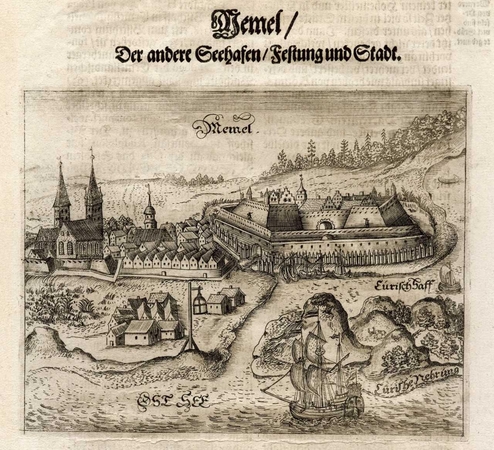 Memel /
Der andere Seehafen / Festung und Stadt.
Memel.
Curisch Haff
Curische Nehrung
OST SEE